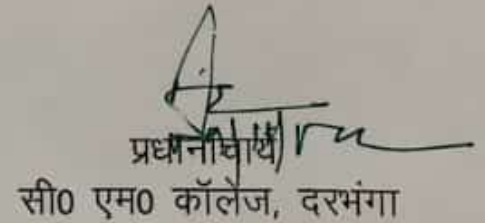 प्रधानाचार्य
सी0 एम0 कॉलेज, दरभंगा